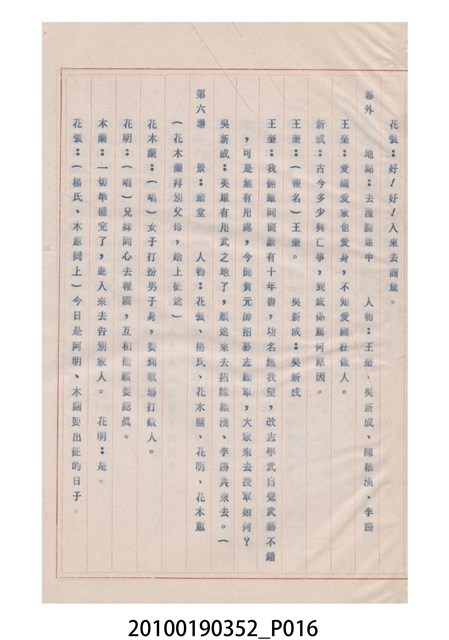 花弧：好！好！入來去商量。
幕外　地點：去漫關途中　人物：王奎、吳新成、陳維漢、李勝
王奎：愛國愛家也愛身，不知愛國枉做人。
新成：古今多少興亡事，到底係屬何原因。
王奎：（報名）王奎。　吳新成：吳新成
王奎：我倆雖同窗讀有十年書，功名無我望，改志學武自覺武藝不錯
，可是無有用處，今聞賀元帥招募志願軍，大家來去投軍如何？
吳新成：英雄有用武之地了，順途來去招陳維漢、李勝共來去。（
第六場　景：廳堂　人物：花弧、楊氏、花木蘭、花明、花木惠
（花木蘭拜別父母，踏上征途）
花木蘭：（唱）女子打扮男子身，要到戰場打敵人。
花明：（唱）兄妹同心去報國，互相照顧要認真。
木蘭：一切準備完了，進入來去告別家人。　花明：是。
花弧：（楊氏、木惠同上）今日是阿明、木蘭要出征的日子。
20100190352_P016